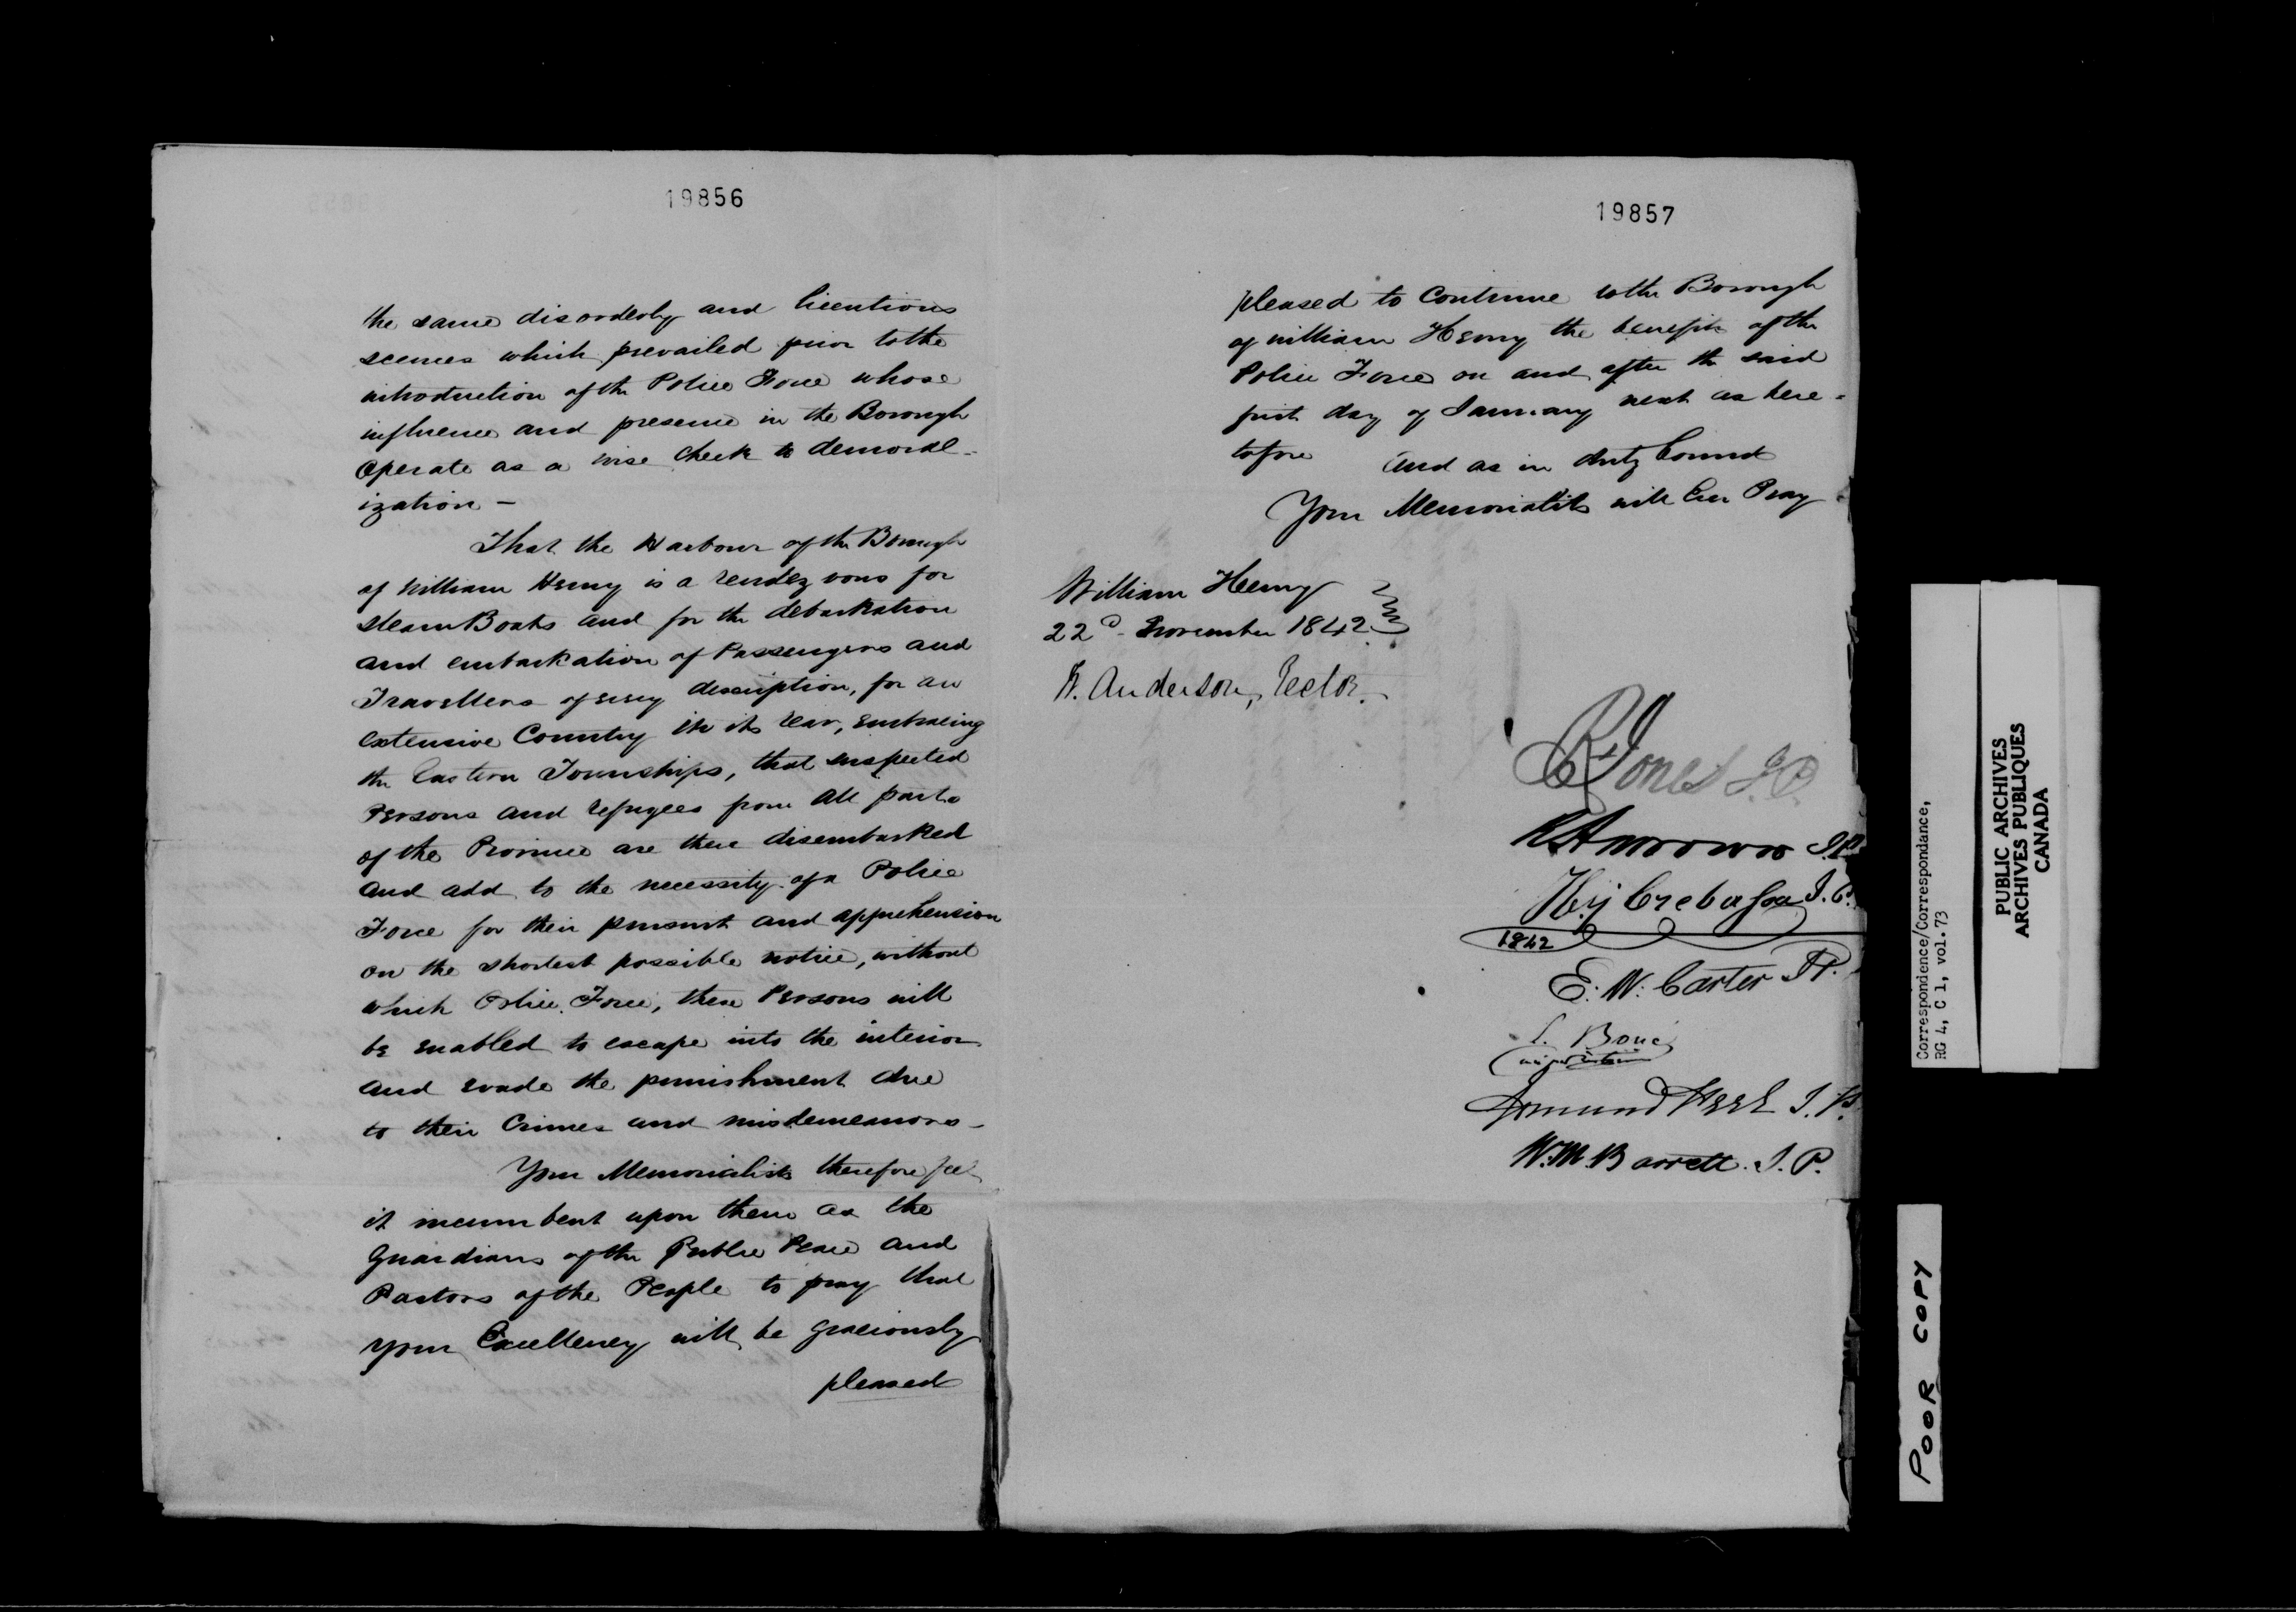 19856
the same disorderly and licentious
scenes which prevailed prior to the
introduction of the Police Force whose
influence and presence in the Borough
operate as a wise check to demoral-
ization —
That the Harbour of the Borough
of William Henry is a rendezvous for
steam Boats and for the debarkation
and embarkation of Passengers and
Travellers of every description, for an
extensive Country in its rear, embracing
the Eastern Townships, that suspected
Persons and refugees from all parts
of the Province are there disembarked
and add to the necessity of a Police
Force for their pursuit and apprehension
on the shortest possible notice, without
which Police Force, these Persons will
be enabled to escape into the interior
and evade the punishment due
to their Crimes and misdemeanors —
Your Memorialists therefore feel
it incumbent upon them as the
Guardians of the Public Peace and
Pastors of the People to pray that
your Excellency will be graciously
pleased
19857
pleased to Continue to the Borough
of William Henry the benefits of the
Police Force on and after the said
first day of January next as here-
tofore And as in duty bound
Your Memorialists will Ever Pray
William Henry
22d November 1842
W. Anderson, Rector.
R Jones J.P.
J.P.
Hy Crebassa J.P.
1842
E. W. Carter JP.
Edmund Peel J.P.
W. M. Barrett. J.P.
Correspondence/Correspondance,
RG 4, C 1, vol.73
PUBLIC ARCHIVES
ARCHIVES PUBLIQUES
CANADA
POOR COPY